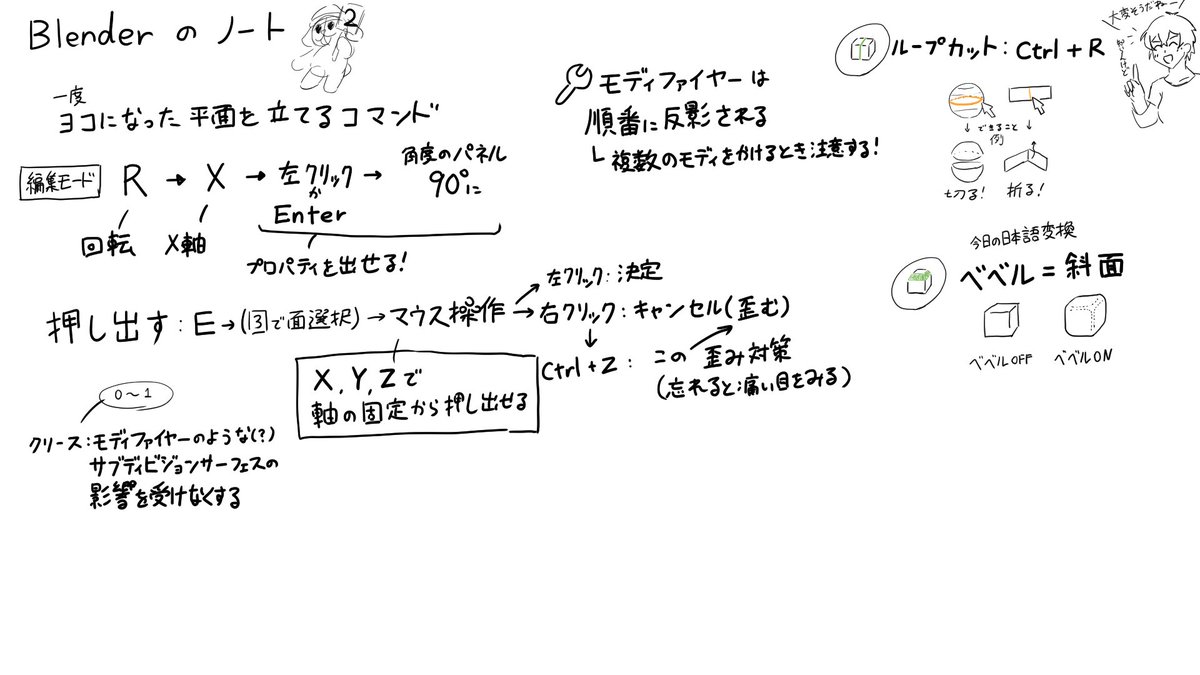 Blender の ノート 2
一度
ヨコになった 平面を 立てるコマンド
編集モード R → X → 左クリック → 角度のパネル
か 90°に
Enter
回転 X軸
プロパティを出せる!
押し出す: E→(③で面選択)→マウス操作→右クリック:キャンセル(歪む)
左クリック:決定
Ctrl+Z: この 歪み対策
(忘れると痛い目をみる)
X, Y, Zで
軸の固定から押し出せる
0~1
クリース:モディファイヤーのような(?)
サブディビジョンサーフェスの
影響を受けなくする
モディファイヤーは
順番に反影される
└複数のモディをかけるとき注意する!
ループカット: Ctrl+R
大変そうだねー
できること
例
切る! 折る!
今日の日本語変換
ベベル=斜面
ベベルOFF ベベルON